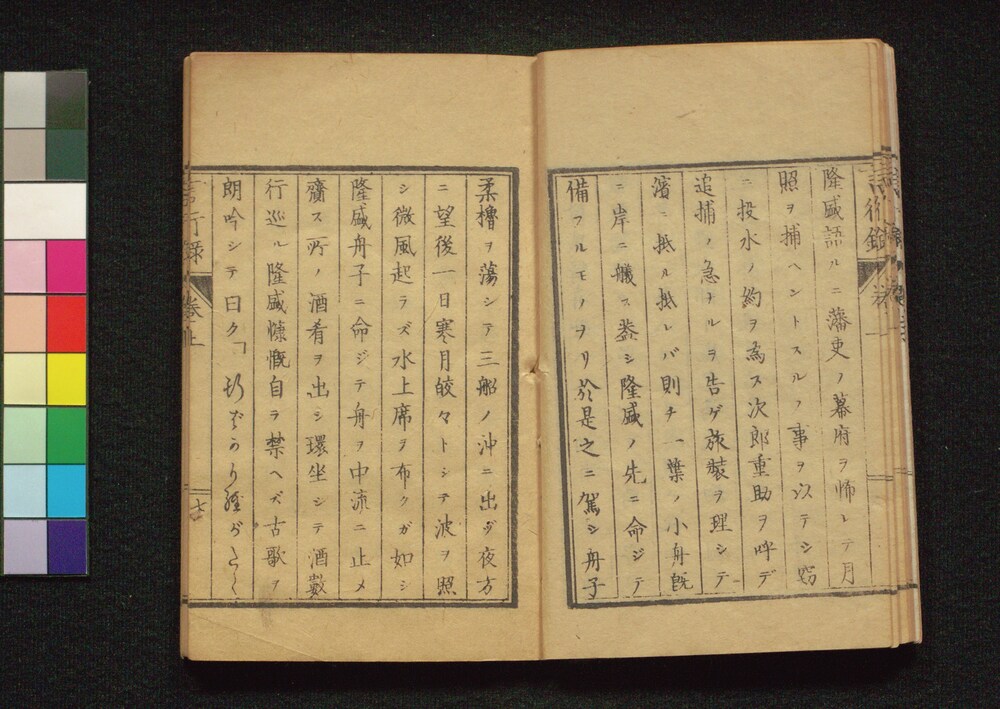 隆盛語ルニ藩吏ノ幕府ヲ怖レテ月
照ヲ捕ヘントスルノ事ヲ以テシ窃
ニ投水ノ約ヲ為ス次郎重助ヲ呼デ
追捕ノ急ナルヲ告ゲ旅装ヲ理シテ
濱ニ抵ル抵レバ則チ一葉ノ小舟既
ニ岸ニ艤ス蓋シ隆盛ノ先ニ命ジテ
備フルモノヲリ於是之ニ駕シ舟子
柔櫓ヲ蕩シテ三船ノ沖ニ出ヅ夜方
ニ望後一日寒月皎々トシテ波ヲ照
シ微風起ラズ水上席ヲ布クガ如シ
隆盛舟子ニ命ジテ舟ヲ中流ニ止メ
齎ス所ノ酒肴ヲ出シ環坐シテ酒数
行巡ル隆盛慷慨自ラ禁ヘズ古歌ヲ
朗吟シテ曰ク「
言行録
巻上
七